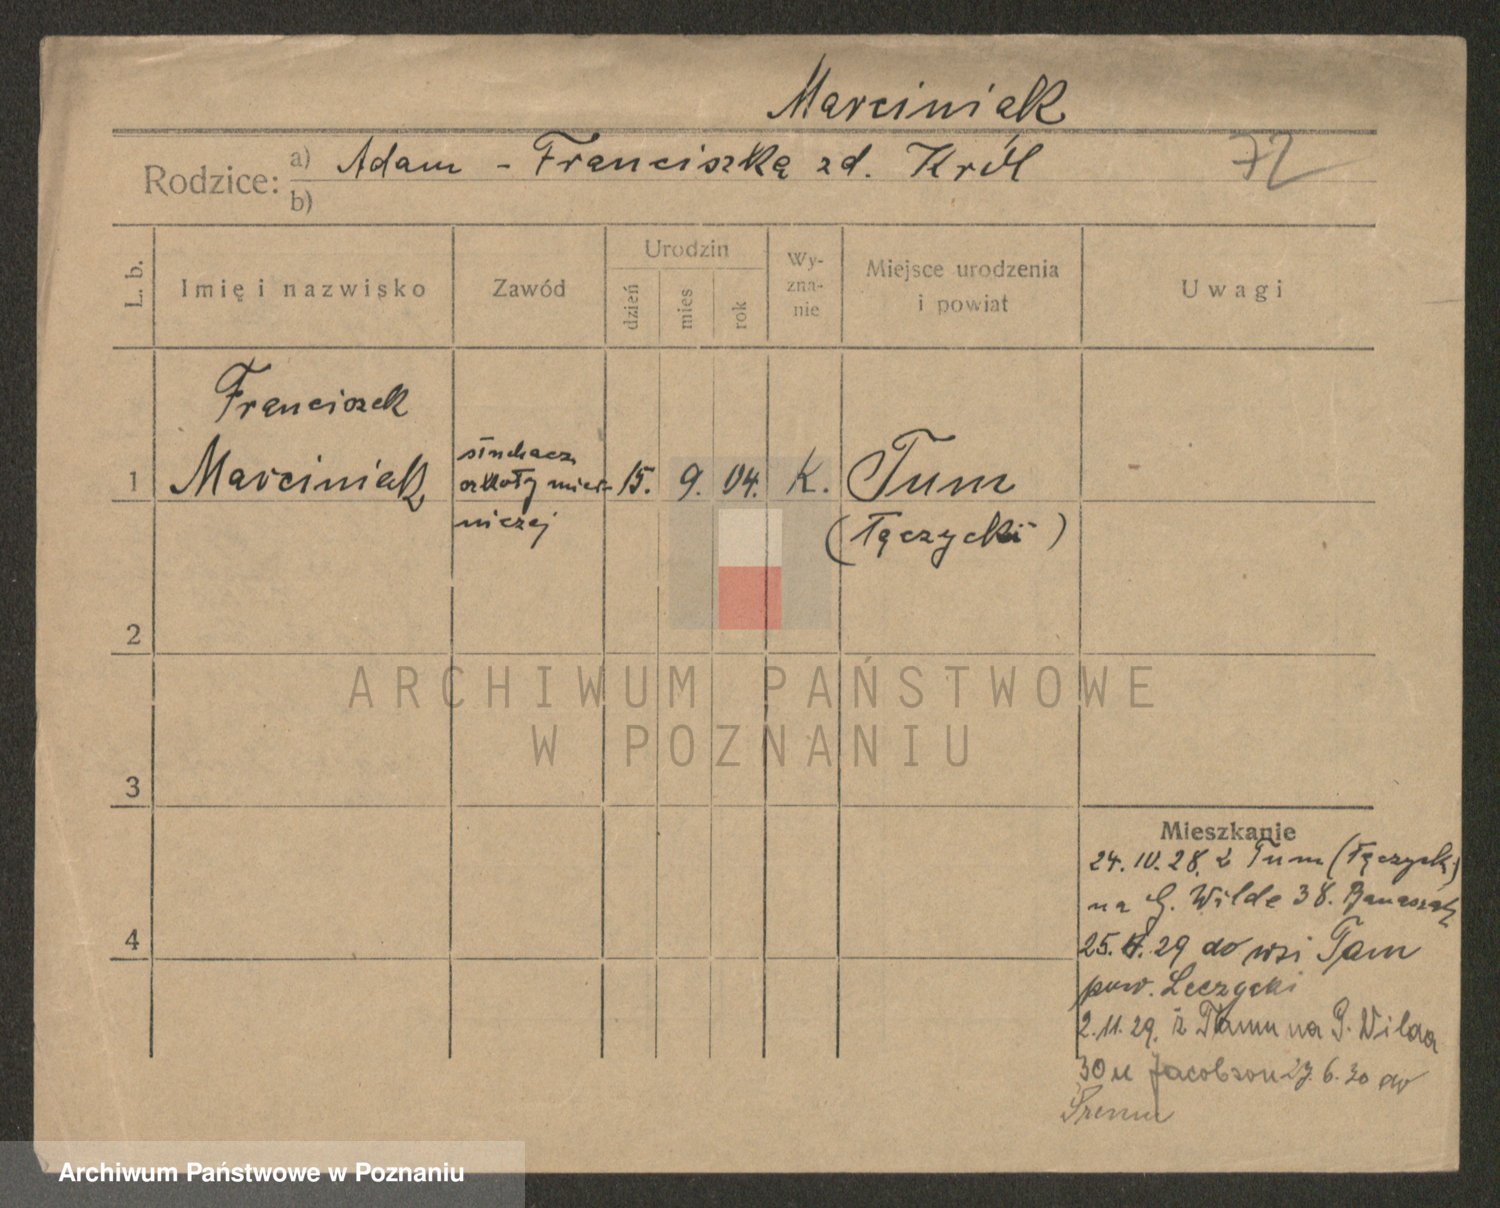 Marciniak
Rodzice: a) Adam - Franciszka zd. Król 72
b)
L. b.
Imię i nazwisko
Zawód
Urodzin
dzień
mies
rok
Wy-
zna-
nie
Miejsce urodzenia
i powiat
Uwagi
Franciszek
1 Marciniak
słuchacz
szkoły mier-
niczej
15. 9. 04. K. Tum
(Łęczycki)
2
3
4
ARCHIWUM PAŃSTWOWE
W POZNANIU
Mieszkanie
24. IV. 28. z Tum (Łęczycki)
na G. Wilde 38. Banaszak
25. 29 do wsi Tam
pow. Leczycki
2.11.29. z Tamu na G. Wilda
30 u Jacobson 27. 6. 30 do
Śremu
Archiwum Państwowe w Poznaniu